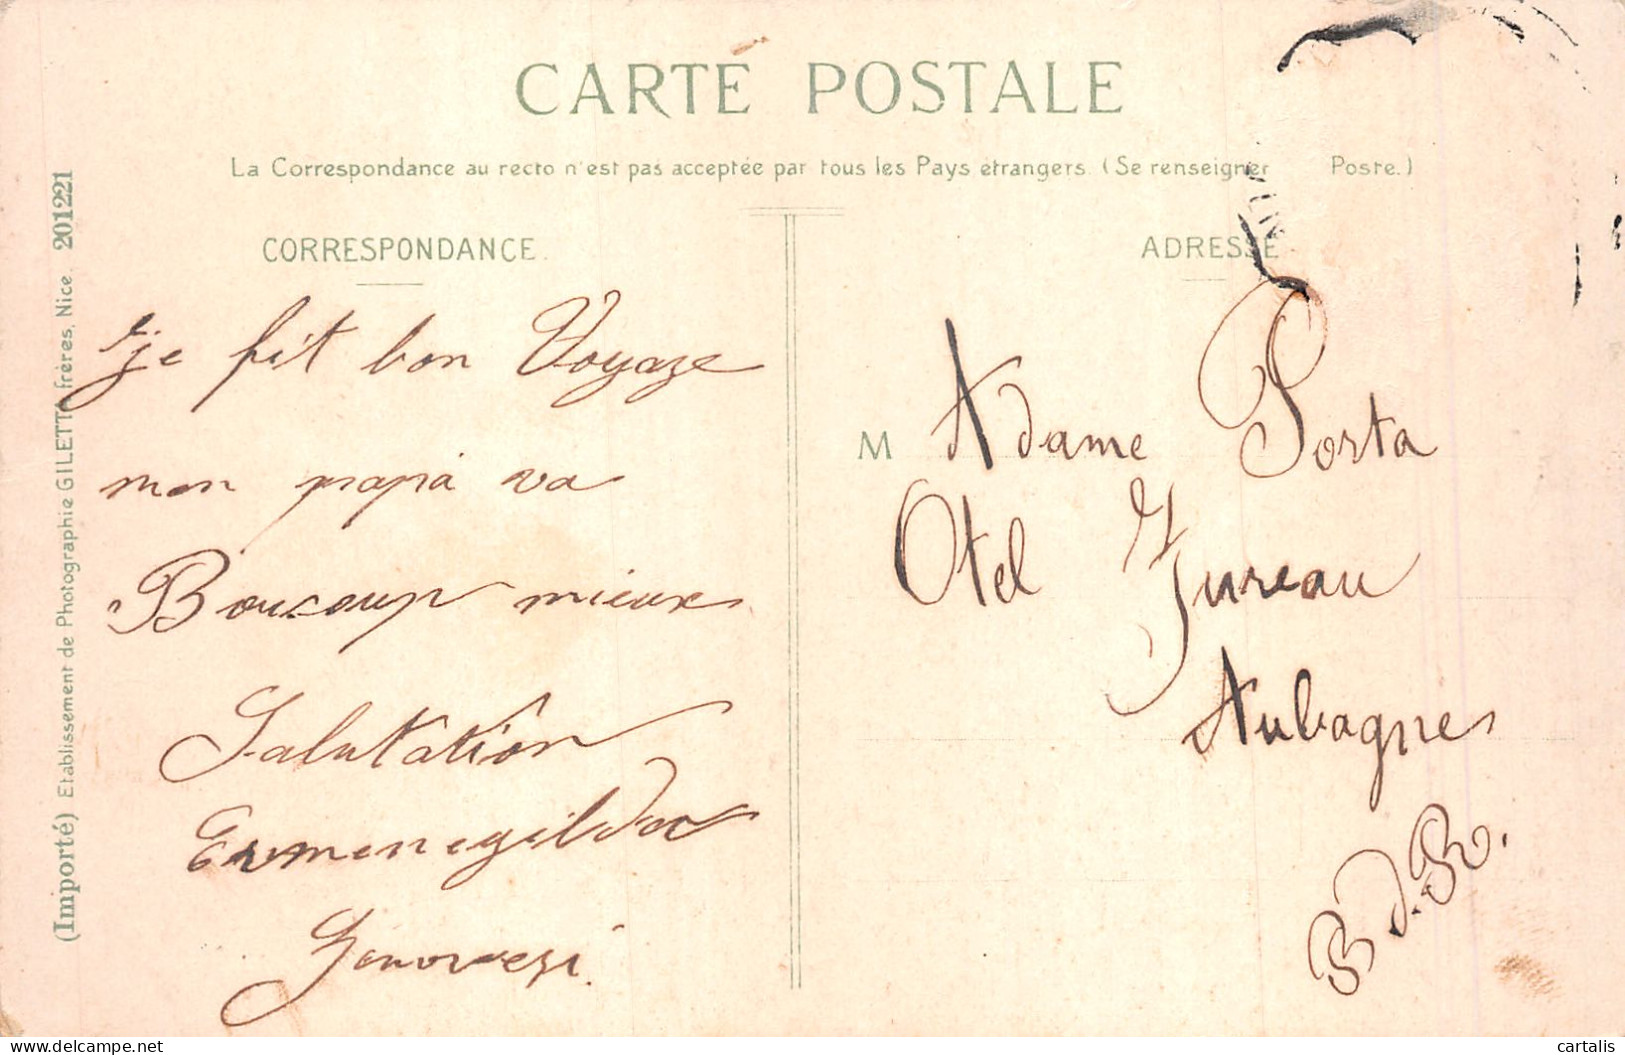 CARTE POSTALE
La Correspondance au recto n'est pas acceptée par tous les Pays étrangers. (Se renseigner Poste.)
CORRESPONDANCE.
je fit bon Voyaze
mon papa va
Boucoup mieux
Salutation
Ermenegildo
Genovesi.
ADRESSE
M Adame Porta
Otel Jureau
Aubagne
B. d. R.
(Importé) Etablissement de Photographie GILETTA frères, Nice. 201221
delcampe.net
cartalis